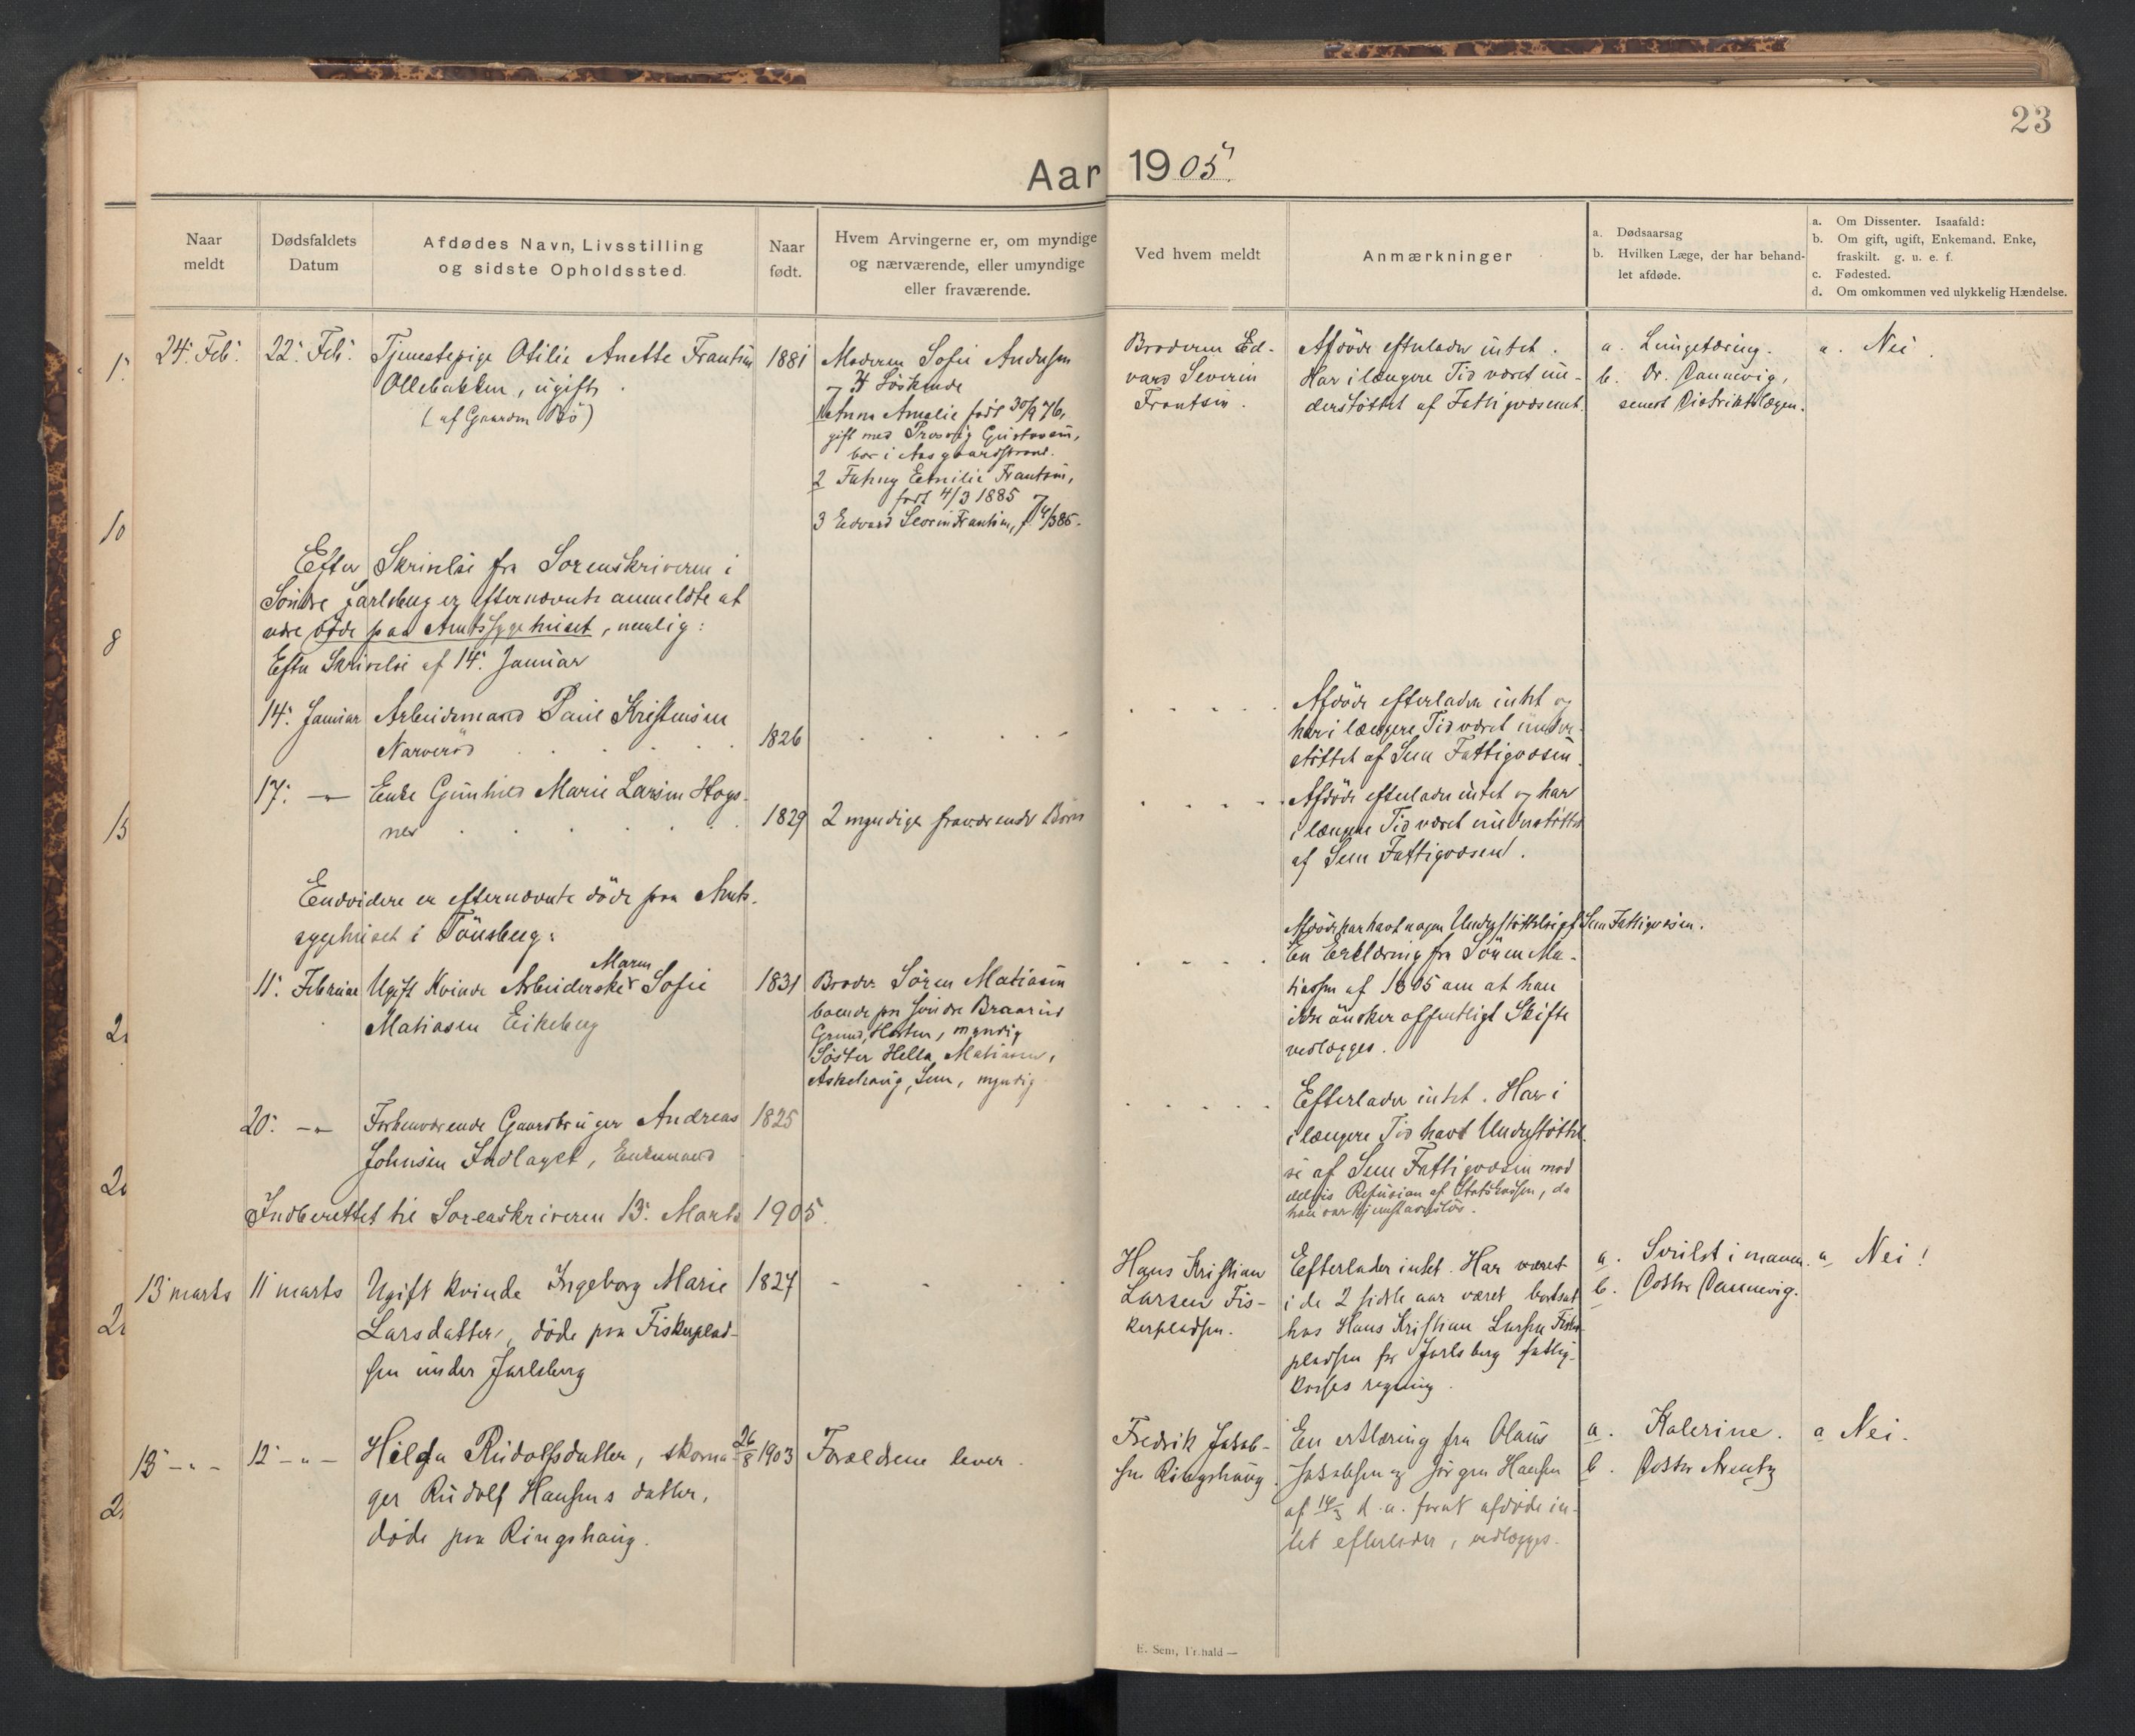 23
Aar 1905
Naar meldt
Dødsfaldets Datum
Afdødes Navn, Livsstilling og sidste Opholdssted.
Naar født.
Hvem Arvingerne er, om myndige og nærværende, eller umyndige eller fraværende.
Ved hvem meldt
Anmærkninger
a. Dødsaarsag
b. Hvilken Læge, der har behandlet afdøde.
a. Om Dissenter. Isaafald:
b. Om gift, ugift, Enkemand. Enke, fraskilt. g. u. e. f.
c. Fødested.
d. Om omkommen ved ulykkelig Hændelse.
24. Feb.
22. Feb.
Tjenestepige Otilie Anette Frantsen
Ollebakken, ugift.
(af Gaarden Bø)
1881
Moderen Sofie Andersen
7 Söskende
1 Anna Amalie født 30/9 76,
gift med Gustavsen,
bor i Aasgaardstrand.
2 Fanny Emilie Frantsen,
født 4/3 1885
3 Edvard Severin Frantsen, f. 4/3 85.
Broderen Ed-
vard Severin
Frantsen.
Afdöde efterlader intet.
Har i længere Tid været un-
derstöttet af Fattigvæsenet.
a. Lungetæring.
b. Dr. Dannevig,
senest Distriktslægen.
a. Nei.
Efter Skrivelse fra Sorenskriveren i
Söndre Jarlsberg er efternævnte anmeldte at
være döde paa Amtssygehuset, nemlig:
Efter Skrivelse af 14. Januar
14. Januar
Arbeidsmand Paul Kristensen
Narveröd
1826
Afdöde efterlader intet og
har i længere Tid været under-
stöttet af Sem Fattigvæsen.
17. — " —
Enke Gunhild Marie Larsen Hogs-
nes
1829
2 myndige fraværende Börn
Afdöde efterlader intet og har
i længere Tid været understöttet
af Sem Fattigvæsen.
Endvidere er efternævnte döde paa Amts-
sygehuset i Tönsberg:
11. Februar
Ugift Kvinde Arbeiderske Maren Sofie
Matiasen Eikeberg
1831
Broder Sören Matiasen
boende paa söndre Braarud
Grund, Horten, myndig
Söster Hella Matiasen,
Askehaug, Sem, myndig
Afdöde har havt nogen Understöttelse af Sem Fattigvæsen.
En Erklæring fra Sören Ma-
tiassen af 1905 om at han
ikke önsker offentligt Skifte
vedlægges.
20. — " —
Forhenværende Gaardbruger Andreas
Johnsen Indlaget, Enkemand
1825
Efterlader intet. Har i
i længere Tid havt Understöttel-
se af Sem Fattigvæsen mod
delvis Refusion af Statskassen, da
han var hjemstavnslös.
Indberettet til Sorenskriveren 13. Marts 1905.
13 marts
11 marts
Ugift kvinde Ingeborg Marie
Larsdatter, döde paa Fiskerplad-
sen under Jarlsberg
1827
Hans Kristian
Larsen Fis-
kerpladsen.
Efterlader intet. Har været
i de 2 sidste aar været bortsat
hos Hans Kristian Larsen Fisker-
pladsen for Jarlsberg fattig-
kasses regning.
a. Svulst i maven.
b. Doktor Dannevig.
a. Nei!
13 — " —
12 — " —
Helga Rudolfsdatter, skoma-
ger Rudolf Hansens datter,
döde paa Ringshaug.
26/8 1903
Forældrene lever.
Fredrik Jakob-
sen Ringshaug.
En erklæring fra Olaus
Jakobsen og Jörgen Hansen
af d. a. forat afdöde in-
tet efterlader, vedlægges.
a. Kolerine.
b. Doktor Arentz
a Nei.
E. Sem, Fr.hald —